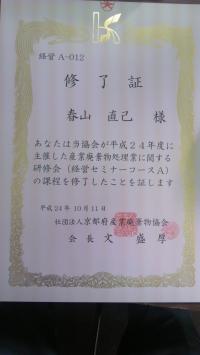 経営 A-012
修了証
春山 直己 様
あなたは当協会が平成24年度に
主催した産業廃棄物処理業に関する
研修会（経営セミナーコースA）
の課程を修了したことを証します
平成24年 10月11日
社団法人京都府産業廃棄物協会
会長 文 盛厚